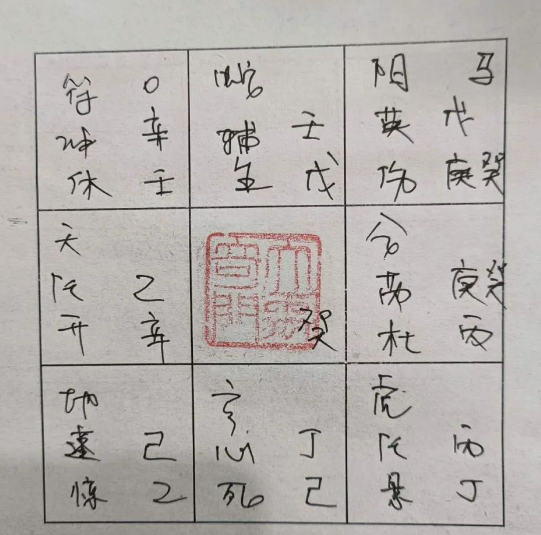 符 O
冲 辛
休 壬
蛇
辅 壬
生 戊
阴 马
英 戊
伤 庚癸
天
任 乙
开 辛
癸
合
芮 庚癸
杜 丙
地
蓬 己
惊 乙
玄
心 丁
死 己
虎
丙
景 丁